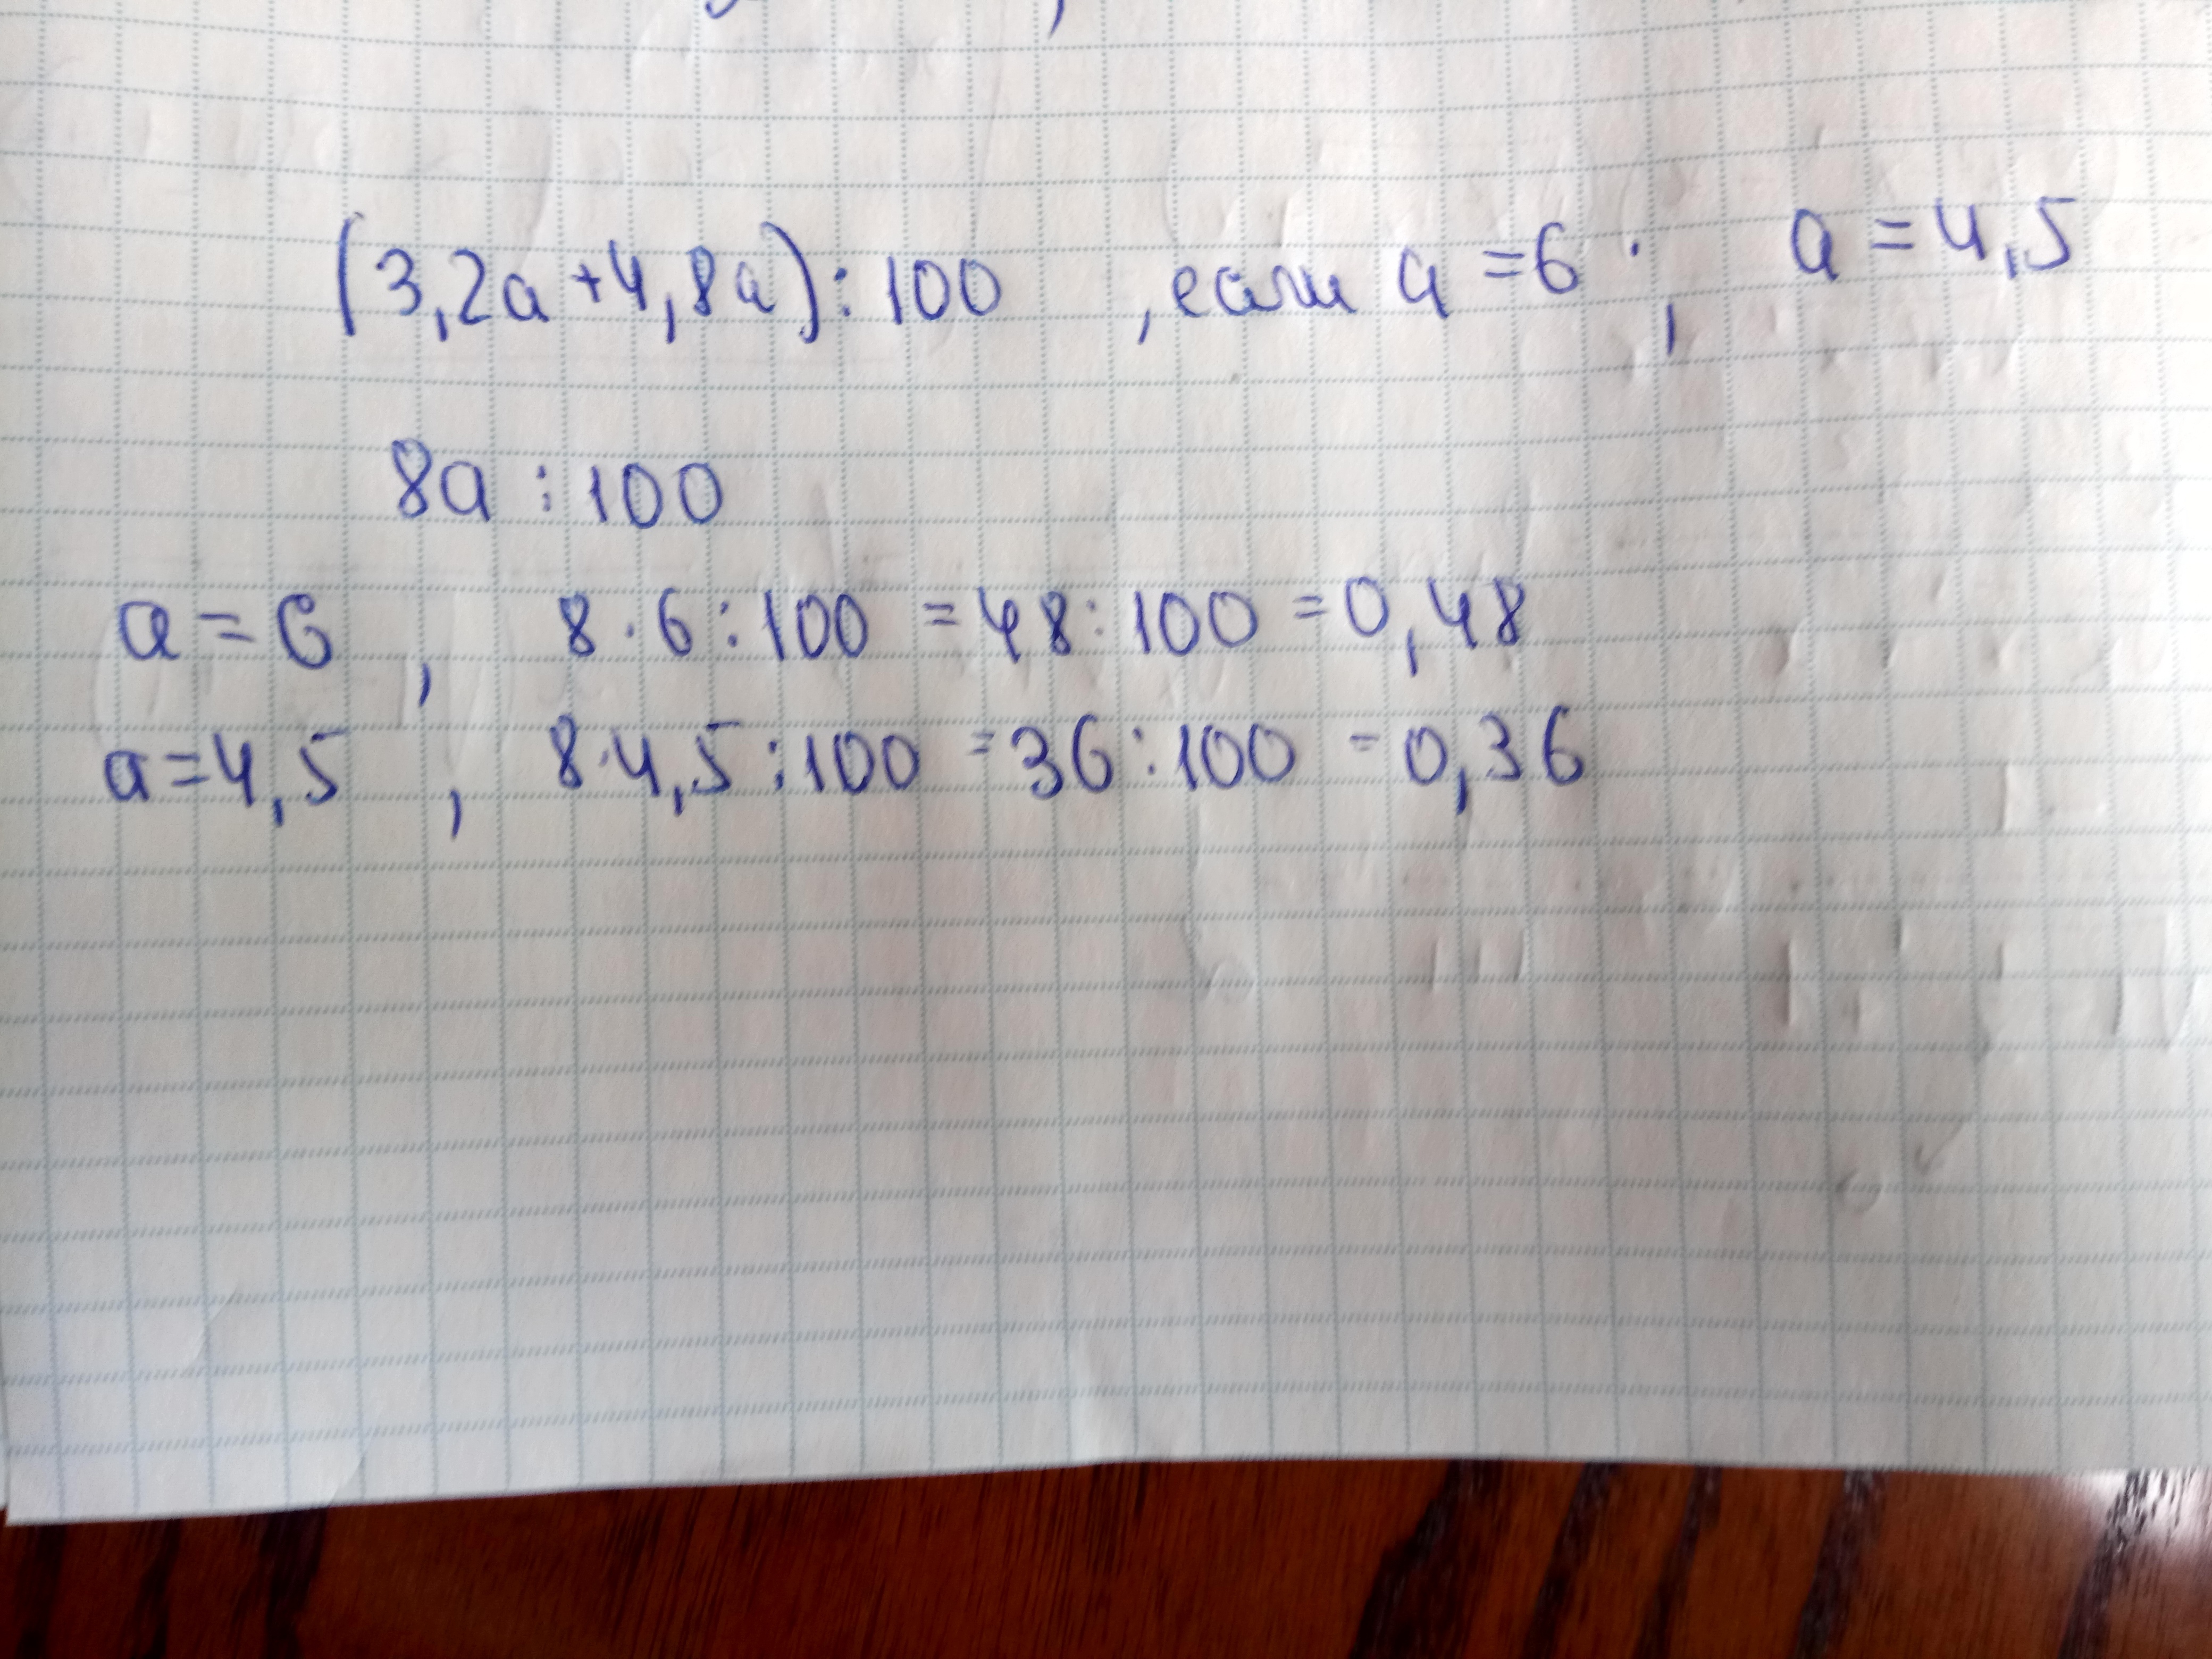 (3,2a+4,8a):100 , если a=6 ; a=4,5
8a : 100
a=6 , 8·6:100 =48:100 =0,48
a=4,5 , 8·4,5:100 =36:100 =0,36